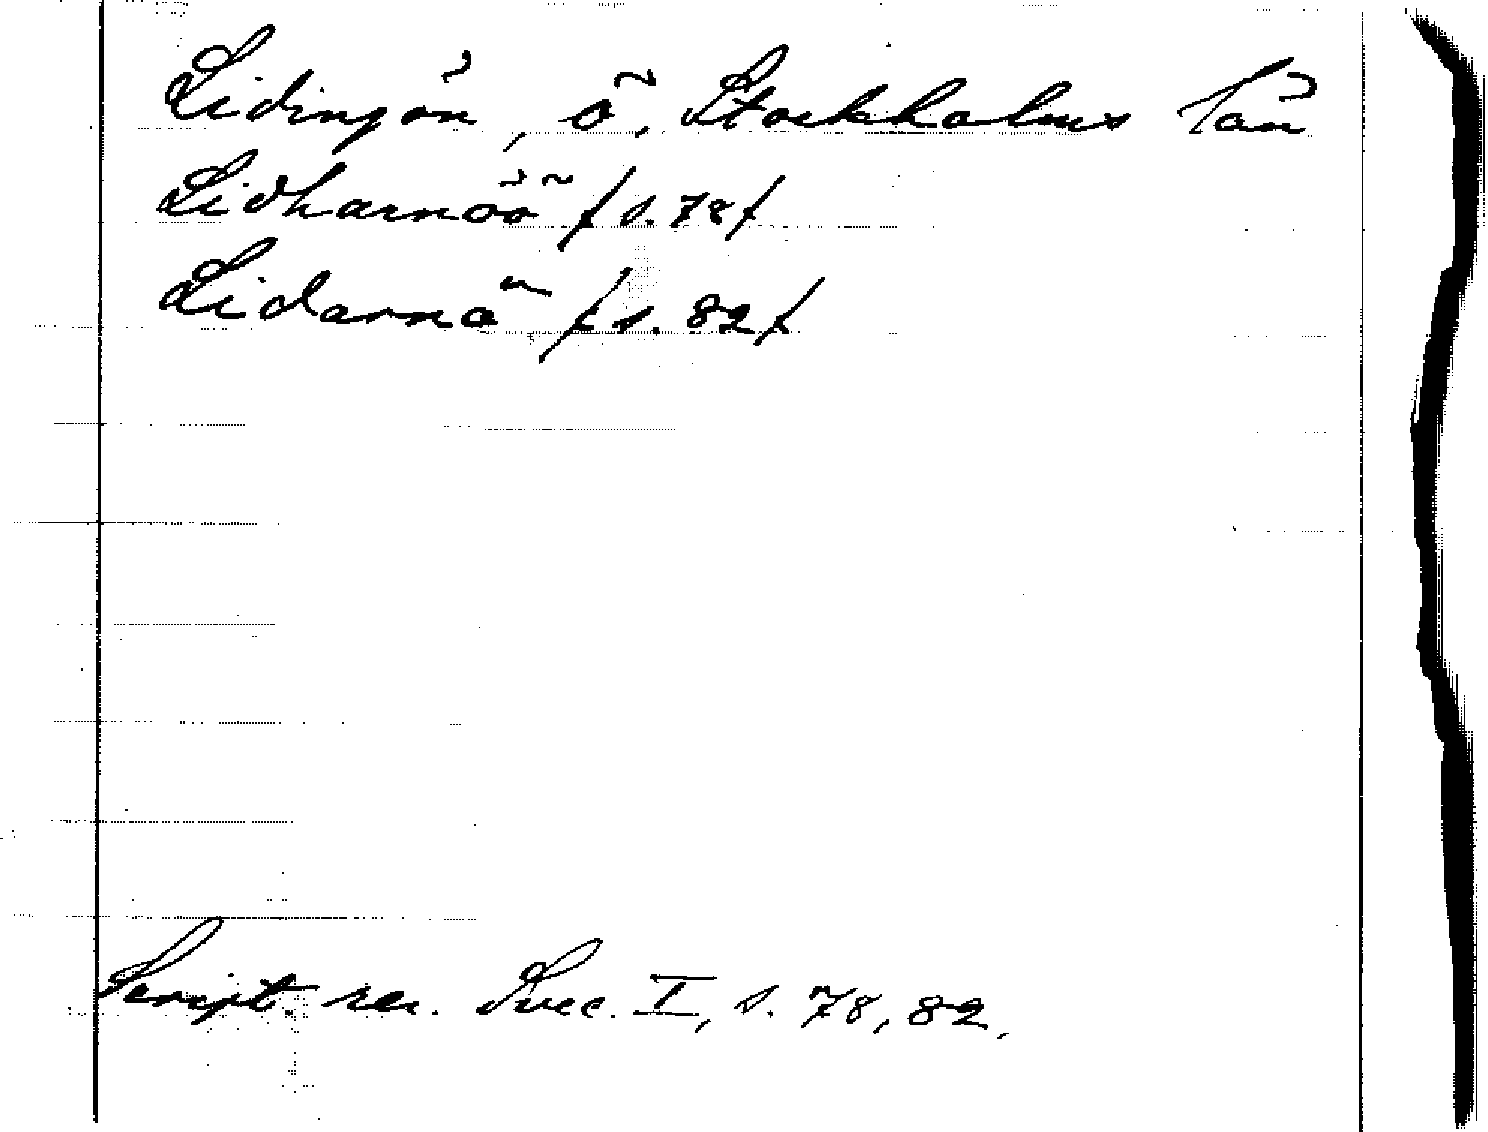 Lidingön, ö, Stockholms län
Lidharnöö / s. 78 /
Lidarnö / s. 82 /
Script. rer. Svec. I, s. 78, 82.